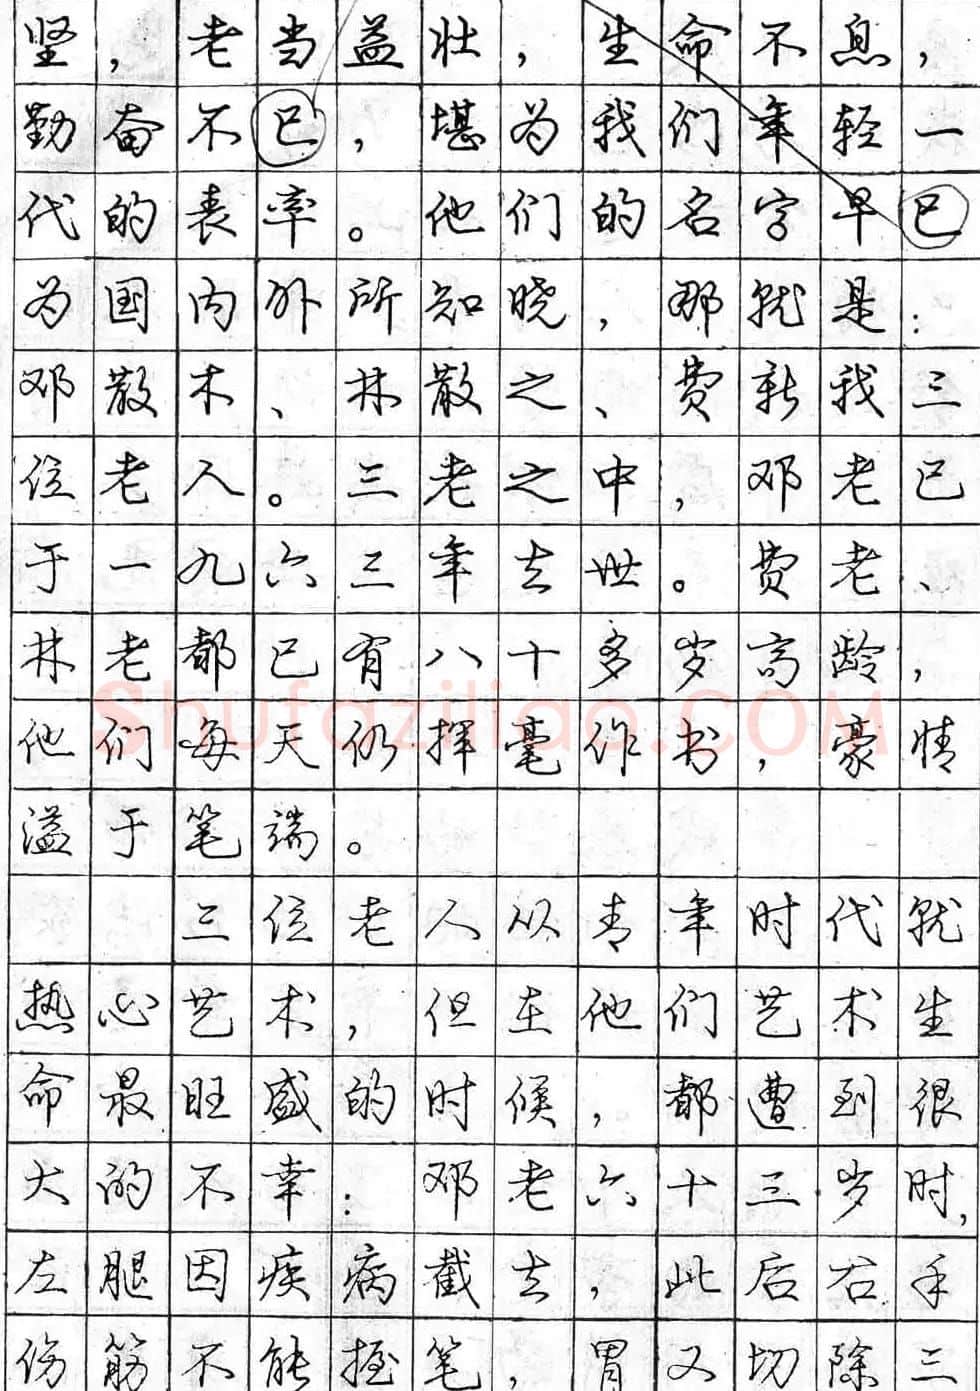 坚，老当益壮，生命不息，
勤奋不已，堪为我们年轻一
代的表率。他们的名字早已
为国内外所知晓，那就是：
邓散木、林散之、费新我三
位老人。三老之中，邓老已
于一九六三年去世。费老、
林老都已有八十多岁高龄，
他们每天仍挥毫作书，豪情
溢于笔端。
三位老人从青年时代就
热心艺术，但在他们艺术生
命最旺盛的时候，都遭到很
大的不幸：邓老六十三岁时，
左腿因疾病截去，此后右手
伤筋不能握笔，胃又切除三
shufaziliao.COM